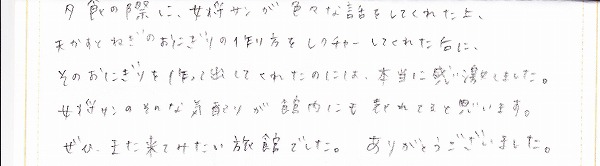 夕飯の際に、女将サンが色々な話をしてくれた上、
天かすとねぎのおにぎりの作り方をレクチャーしてくれた后に、
そのおにぎりを作って出してくれたのには、本当に感激しました。
女将サンのそのな気配りが館内にも表れてると思います。
ぜひ、また来てみたい旅館でした。 ありがとうございました。